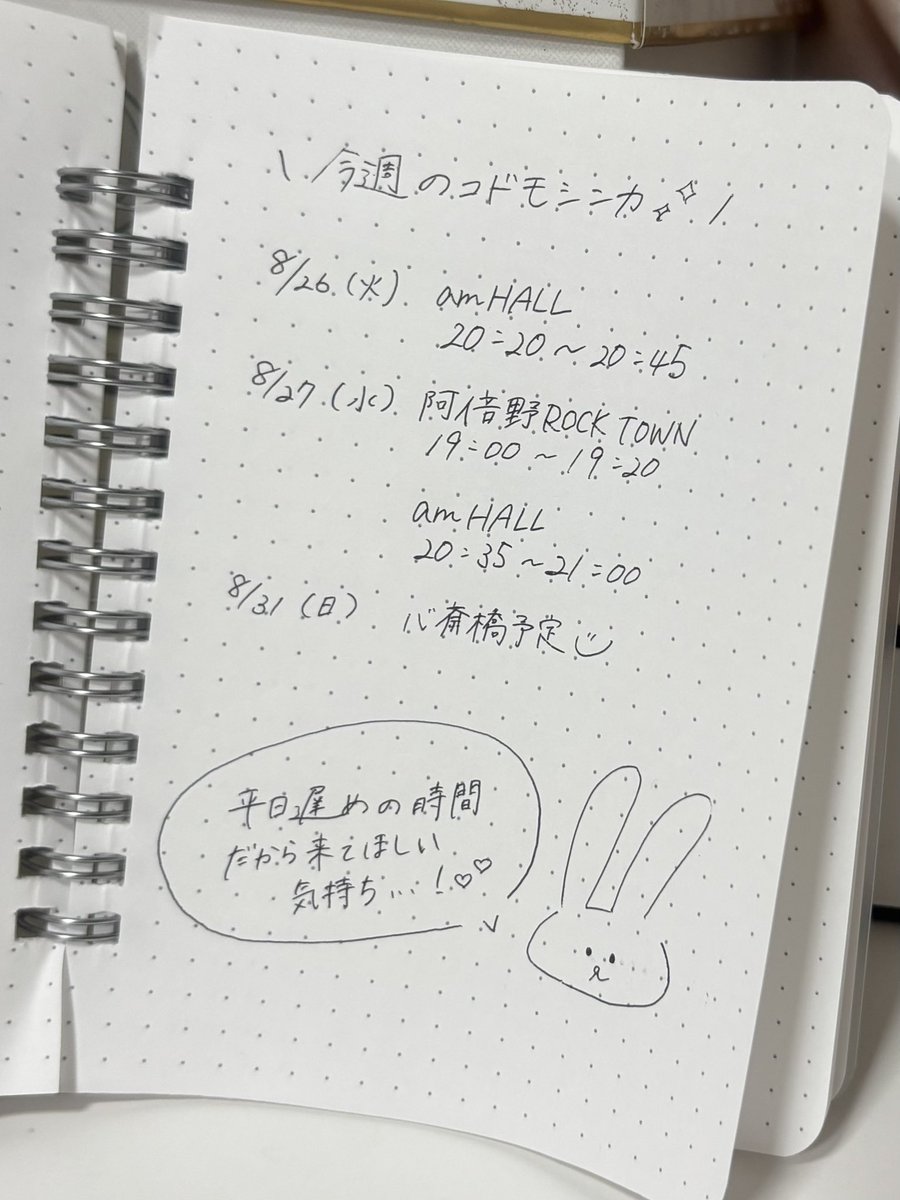 \ 今週のコドモシンカ /
8/26 (火) amHALL
20:20〜20:45
8/27 (水) 阿倍野ROCK TOWN
19:00〜19:20
amHALL
20:35〜21:00
8/31 (日) 心斎橋予定
平日遅めの時間
だから来てほしい
気持ち…！♡♡